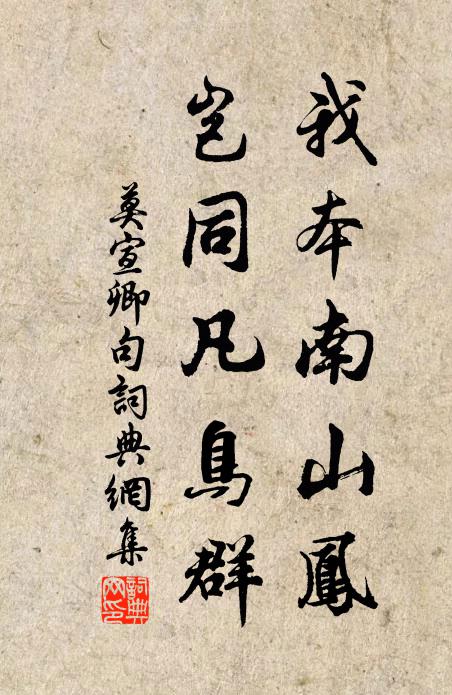 我本南山鳳
豈同凡鳥群
莫宣卿句詞典網集
詞典網印